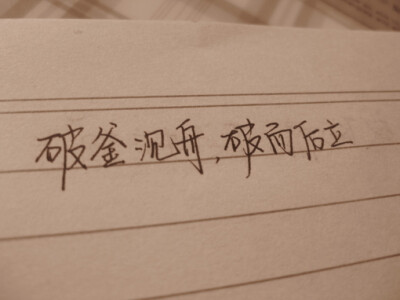 破釜沉舟,破而后立